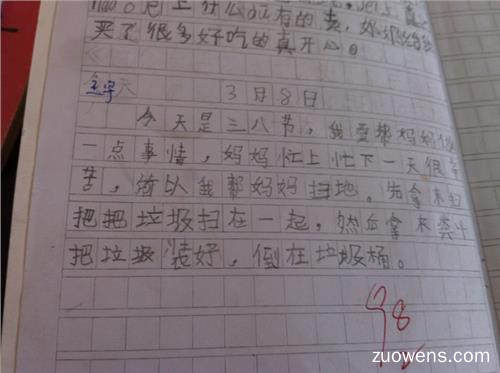 的卖,奶奶给我
买了很多好吃的真开心。
天 3月8日
今天是三八节,我要帮妈妈做
一点事情,妈妈忙上忙下一天很辛
苦,所以我帮妈妈扫地。先拿来扫
把把垃圾扫在一起,然后拿来粪斗
把垃圾装好,倒在垃圾桶。
98
zuowens.com